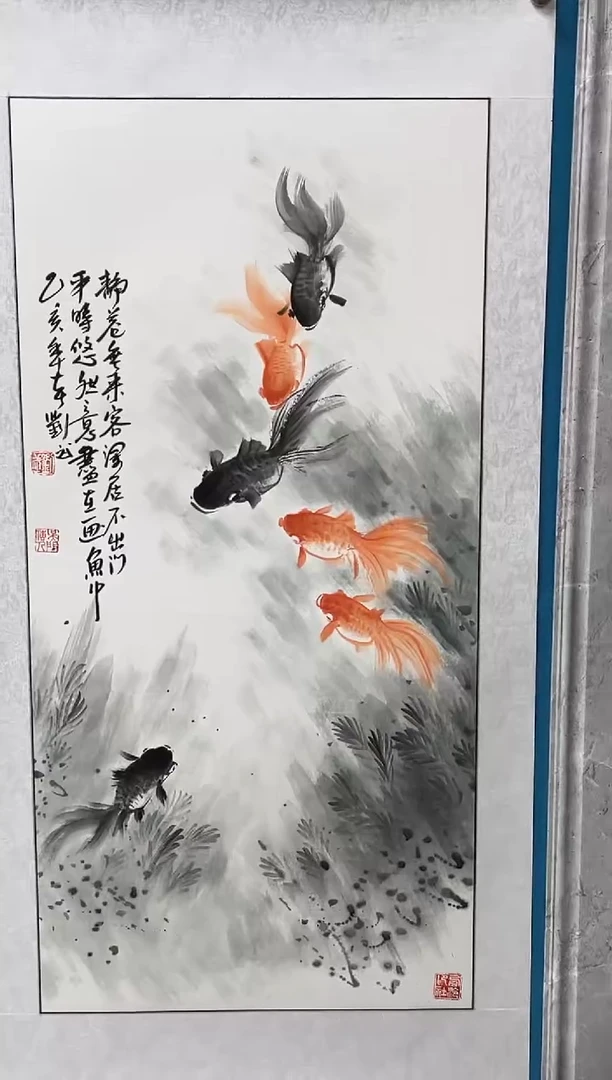 静巷無来客深居不出门
平時悠然意盡在画魚中
乙亥年劉